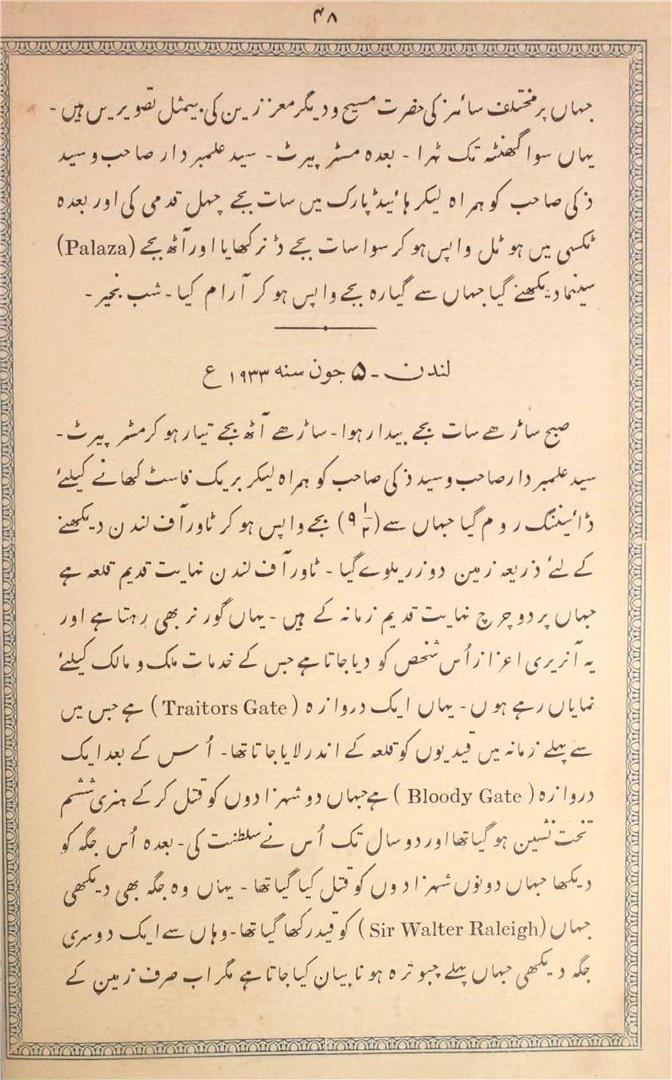 ۴۸
جہاں پر مختلف سائز کی حضرت مسیح و دیگر معززین کی بیمثل تصویریں ہیں۔
یہاں سوا گھنٹہ تک ٹہرا۔ بعدہ مسٹر پیرٹ۔ سید علمبردار صاحب و سید
ذکی صاحب کو ہمراہ لیکر ہائیڈ پارک میں سات بجے چہل قدمی کی اور بعدہ
ٹکسی میں ہوٹل واپس ہو کر سوا سات بجے ڈنر کھایا اور آٹھ بجے (Palaza)
سینما دیکھنے گیا جہاں سے گیارہ بجے واپس ہو کر آرام کیا۔ شب بخیر۔
لندن۔ ۵ جون سنہ ۱۹۳۳ ع
صبح ساڑھے سات بجے بیدار ہوا۔ ساڑھے آٹھ بجے تیار ہو کر مسٹر پیرٹ۔
سید علمبردار صاحب و سید ذکی صاحب کو ہمراہ لیکر بریک فاسٹ کھانے کیلئے
ڈائیننگ روم گیا جہاں سے (۹½) بجے واپس ہو کر ٹاور آف لندن دیکھنے
کے لئے ذریعہ زمین دوز ریلوے گیا۔ ٹاور آف لندن نہایت قدیم قلعہ ہے
جہاں پر دو چرچ نہایت قدیم زمانہ کے ہیں۔ یہاں گورنر بھی رہتا ہے اور
یہ آنریری اعزاز اُس شخص کو دیا جاتا ہے جس کے خدمات ملک و مالک کیلئے
نمایاں رہے ہوں۔ یہاں ایک دروازہ (Traitors Gate) ہے جس میں
سے پہلے زمانہ میں قیدیوں کو قلعہ کے اندر لایا جاتا تھا۔ اُس کے بعد ایک
دروازہ (Bloody Gate) ہے جہاں دو شہزادوں کو قتل کر کے ہنری ششم
تخت نشین ہو گیا تھا اور دو سال تک اُس نے سلطنت کی۔ بعدہ اُس جگہ کو
دیکھا جہاں دونوں شہزادوں کو قتل کیا گیا تھا۔ یہاں وہ جگہ بھی دیکھی
جہاں (Sir Walter Raleigh) کو قید رکھا گیا تھا۔ وہاں سے ایک دوسری
جگہ دیکھی جہاں پہلے چبوترہ ہونا بیان کیا جاتا ہے مگر اب صرف زمین کے